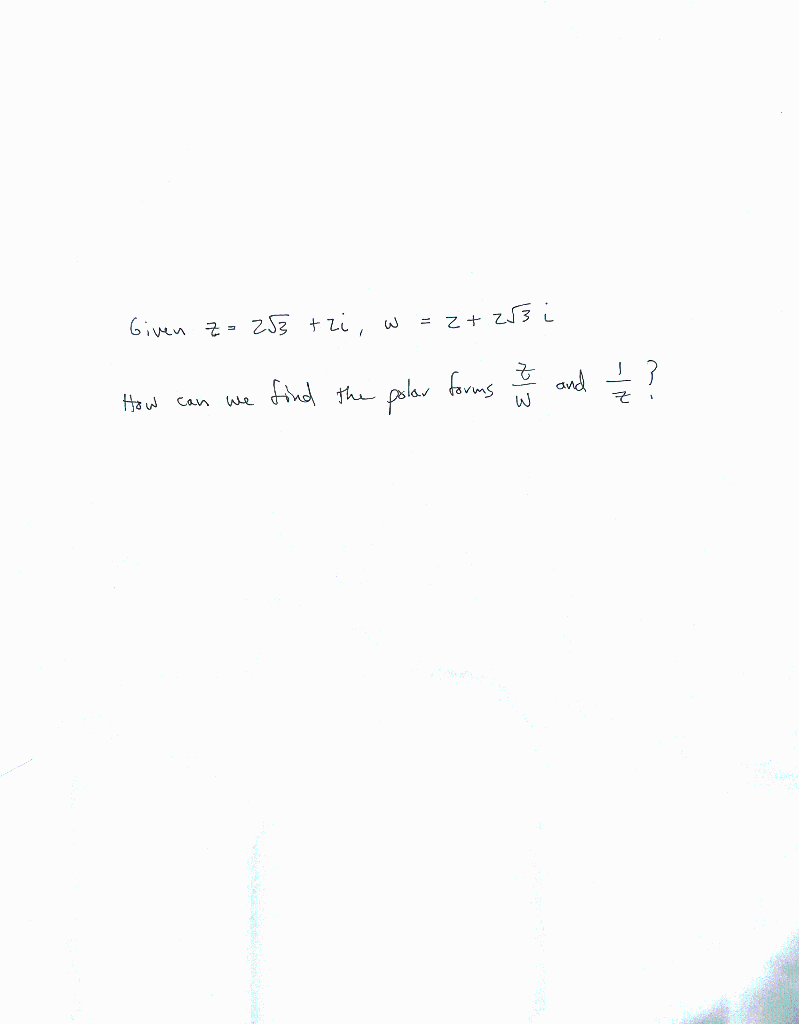 Given z = 2√3 + 2i, w = 2 + 2√3 i
How can we find the polar forms z/w and 1/z ?